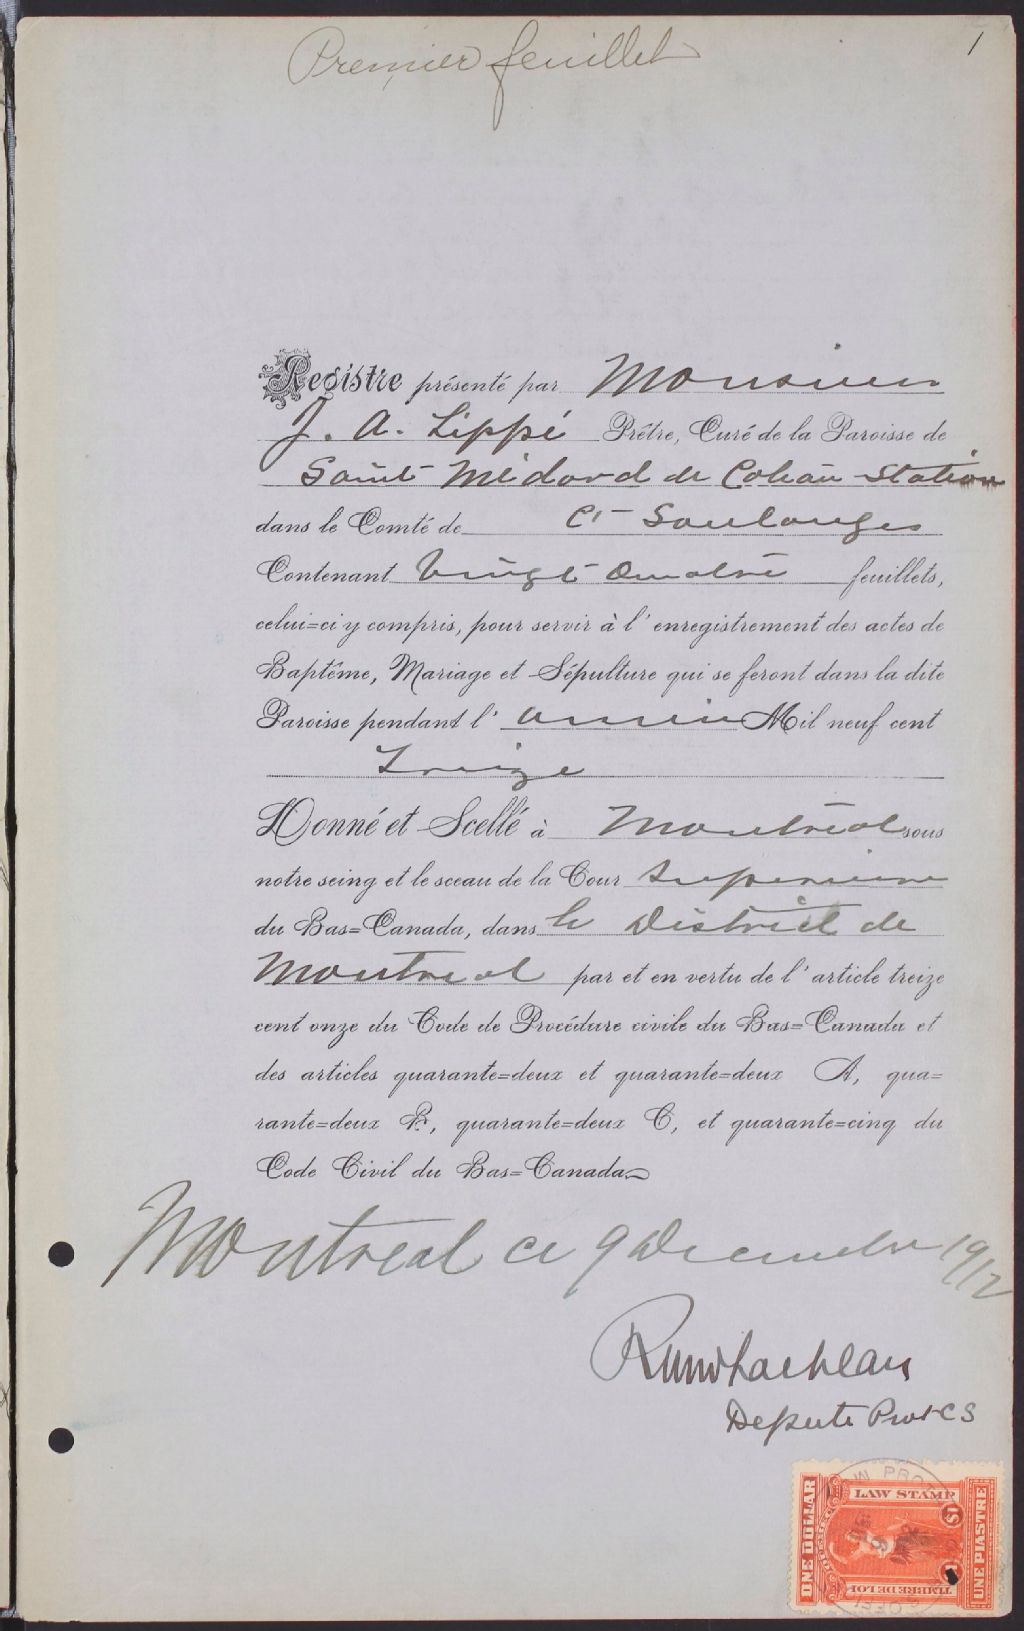 Premier feuillet
1
Registre présenté par Monsieur
J. A. Lippé Prêtre, Curé de la Paroisse de
Saint Médard de Coteau Station
dans le Comté de Soulanges
Contenant Vingt Quatre feuillets,
celui=ci y compris, pour servir à l'enregistrement des actes de
Baptême, Mariage et Sépulture qui se feront dans la dite
Paroisse pendant l' année Mil neuf cent
Treize
Donné et Scellé à Montréal sous
notre seing et le sceau de la Cour Supérieure
du Bas=Canada, dans le District de
Montreal par et en vertu de l'article treize
cent onze du Code de Procédure civile du Bas=Canada et
des articles quarante=deux et quarante=deux A, qua=
rante=deux B, quarante=deux C, et quarante=cinq du
Code Civil du Bas=Canada
Montreal ce 9 Decembre 1912
Depute Prot C S
ONE DOLLAR
LAW STAMP
$1
TIMBRE DE LOI
UNE PIASTRE